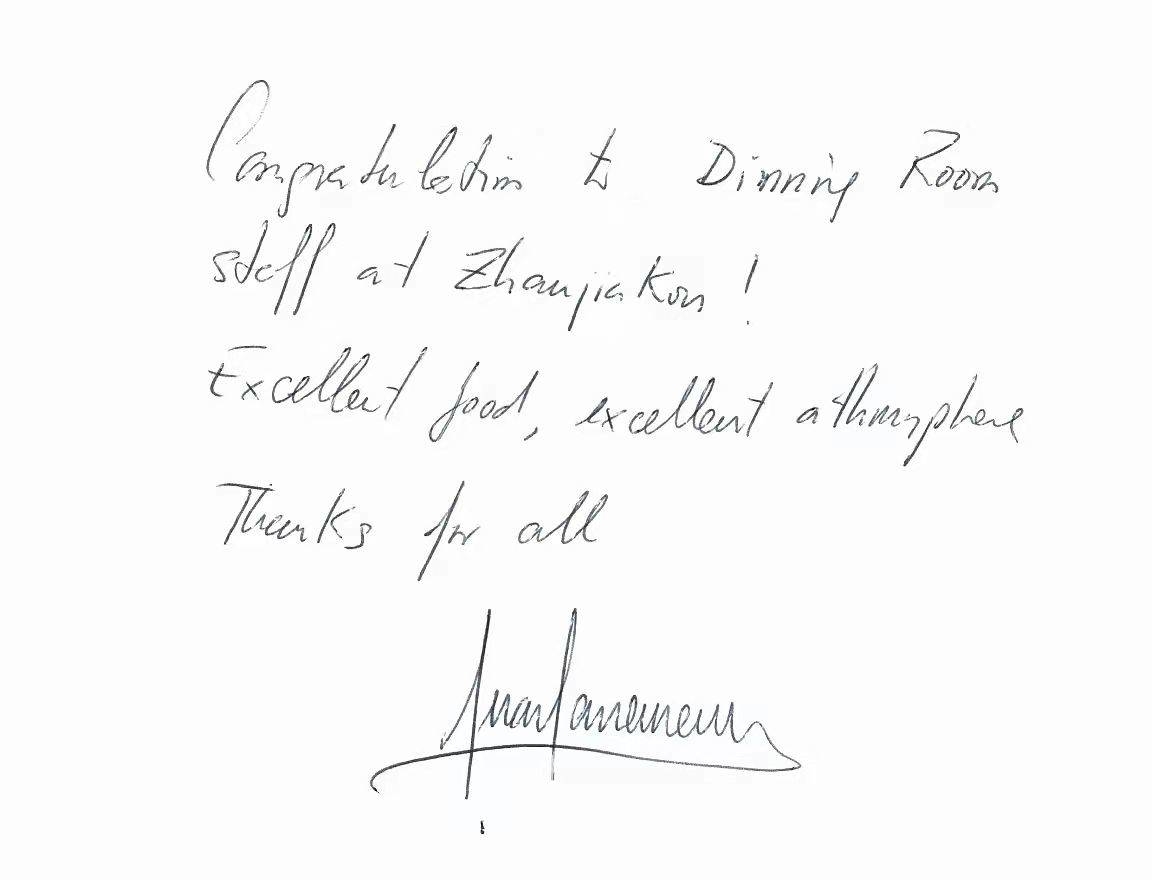 Congratulation to Dinning Room
staff at Zhanjiakon!
Excellent food, excellent athmosphere
Thanks for all